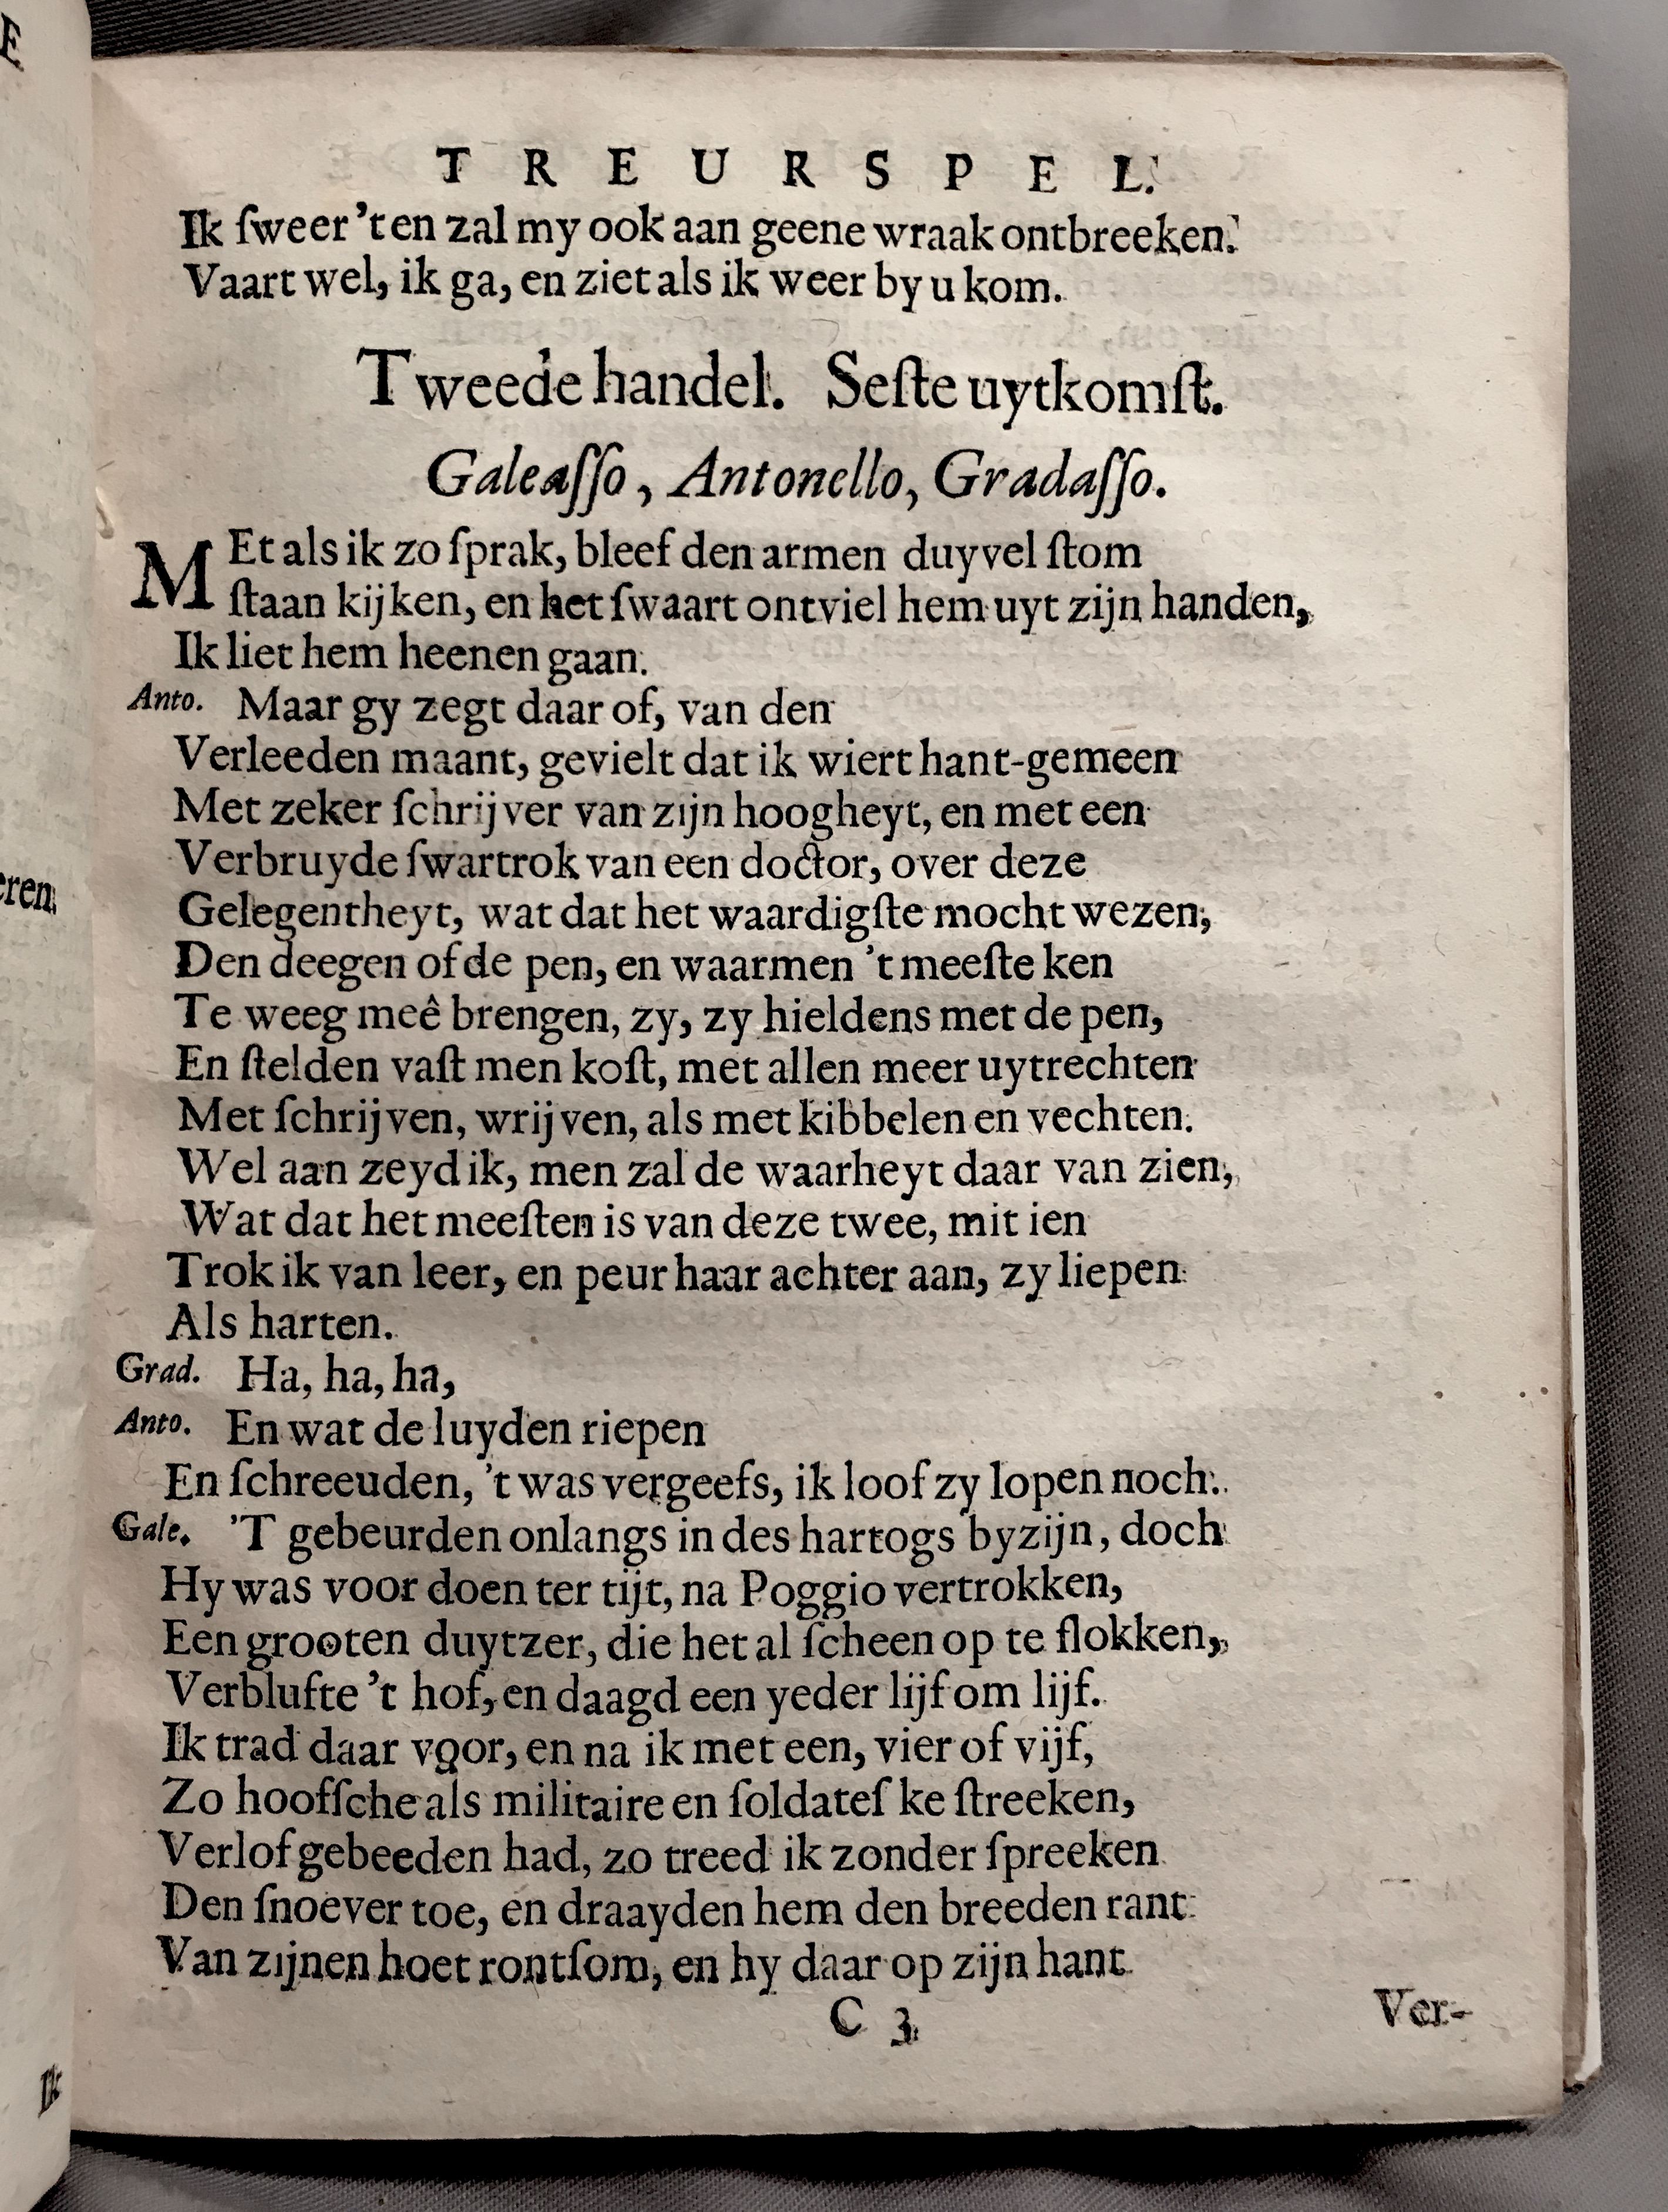 TREURSPEL.
Ik ſweer 't en zal my ook aan geene wraak ontbreeken.
Vaart wel, ik ga, en ziet als ik weer by u kom.
Tweede handel. Seſte uytkomſt.
Galeaſſo, Antonello, Gradaſſo.
MEt als ik zo ſprak, bleef den armen duyvel ſtom
ſtaan kijken, en het ſwaart ontviel hem uyt zijn handen,
Ik liet hem heenen gaan.
Anto. Maar gy zegt daar of, van den
Verleeden maant, gevielt dat ik wiert hant-gemeen
Met zeker ſchrijver van zijn hoogheyt, en met een
Verbruyde ſwartrok van een doctor, over deze
Gelegentheyt, wat dat het waardigſte mocht wezen,
Den deegen of de pen, en waarmen 't meeſte ken
Te weeg meê brengen, zy, zy hieldens met de pen,
En ſtelden vaſt men koſt, met allen meer uytrechten
Met ſchrijven, wrijven, als met kibbelen en vechten.
Wel aan zeyd ik, men zal de waarheyt daar van zien,
Wat dat het meeſten is van deze twee, mit ien
Trok ik van leer, en peur haar achter aan, zy liepen
Als harten.
Grad. Ha, ha, ha,
Anto. En wat de luyden riepen
En ſchreeuden, 't was vergeefs, ik loof zy lopen noch.
Gale. 'T gebeurden onlangs in des hartogs byzijn, doch
Hy was voor doen ter tijt, na Poggio vertrokken,
Een grooten duytzer, die het al ſcheen op te ſlokken,
Verblufte 't hof, en daagd een yeder lijf om lijf.
Ik trad daar voor, en na ik met een, vier of vijf,
Zo hoofſche als militaire en ſoldateſ ke ſtreeken,
Verlof gebeeden had, zo treed ik zonder ſpreeken
Den ſnoever toe, en draayden hem den breeden rant
Van zijnen hoet rontſom, en hy daar op zijn hant
C 3
Ver-
eren
Ik
E